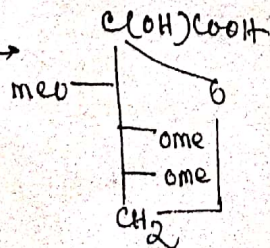 C(OH)COOH
O
meo
ome
ome
CH2